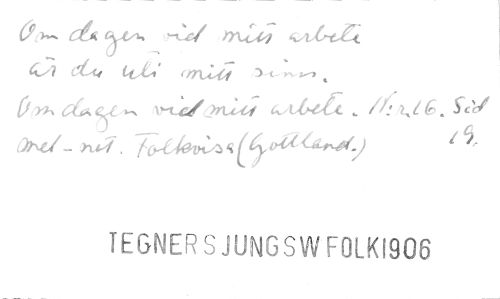 Om dagen vid mitt arbete
är du uti mitt sinn.
Om dagen vid mitt arbete. N:r 16. Sid 19.
mel-not. Folkvisa (Gottland.)
TEGNER SJUNGSW FOLK1906